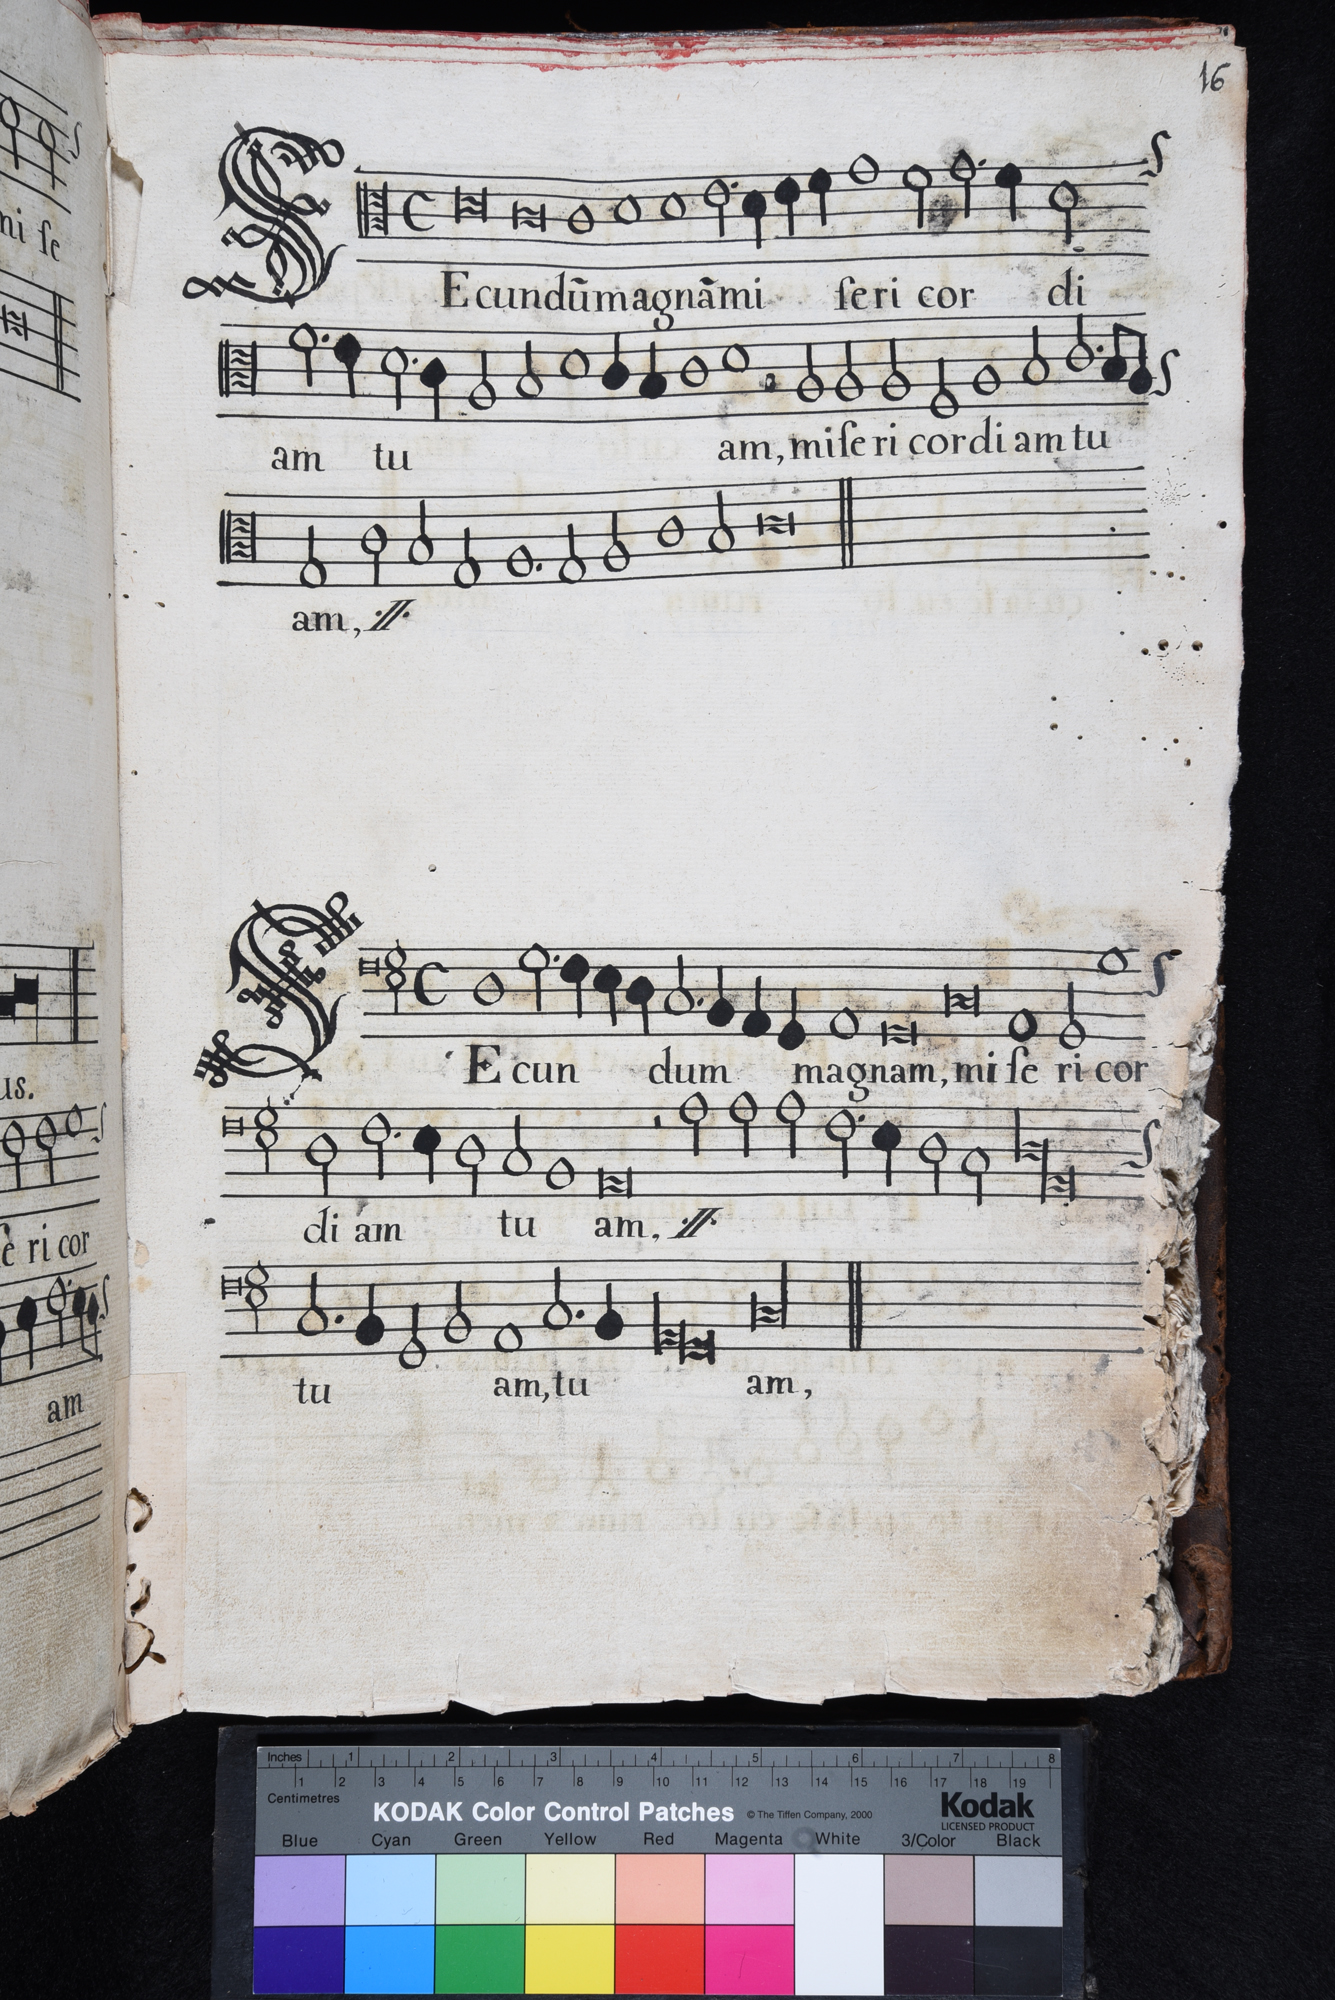 16
SEcundũmagnãmi ſeri cor di
am tu am, miſeri cordi am tu
am, :||:
SEcun dum magnam, mi ſe ri cor
di am tu am, :||:
tu am, tu am,
ni ſe
us.
e ri cor
am
Inches 1 2 3 4 5 6 7 8
Centimetres 1 2 3 4 5 6 7 8 9 10 11 12 13 14 15 16 17 18 19
KODAK Color Control Patches © The Tiffen Company, 2000 Kodak
LICENSED PRODUCT
Blue Cyan Green Yellow Red Magenta White 3/Color Black